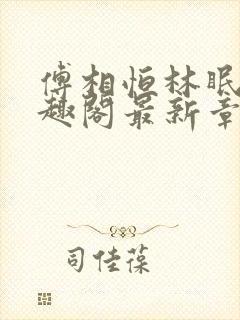 傅相恒林眠
趣阁最新章
司佳葆